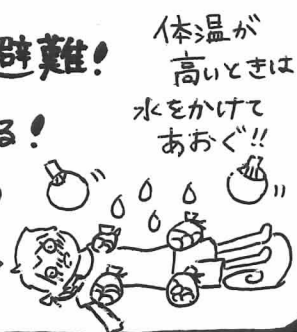 避難!
る!
体温が
高いときは
水をかけて
あおぐ!!